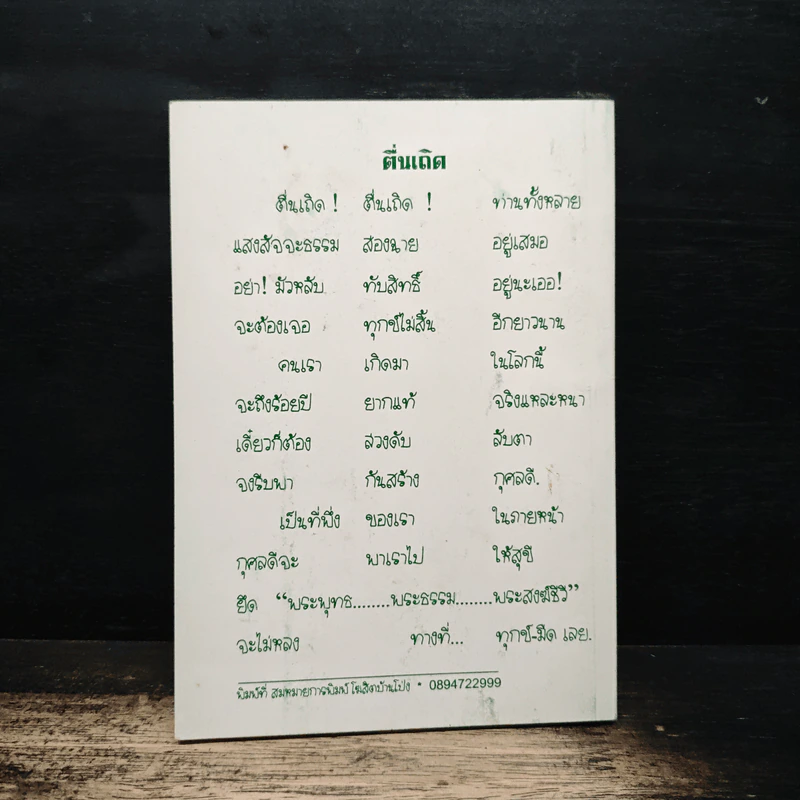 ตื่นเถิด
ตื่นเถิด ! ตื่นเถิด ! ท่านทั้งหลาย
แสงสัจจะธรรม ส่องฉาย อยู่เสมอ
อย่า! มัวหลับ ทับสิทธิ์ อยู่นะเออ!
จะต้องเจอ ทุกข์ไม่สิ้น อีกยาวนาน
คนเรา เกิดมา ในโลกนี้
จะถึงร้อยปี ยากแท้ จริงแหละหนา
เดี๋ยวก็ต้อง ล่วงดับ ลับตา
จงรีบพา กันสร้าง กุศลดี.
เป็นที่พึ่ง ของเรา ในภายหน้า
กุศลดีจะ พาเราไป ให้สุขี
ยึด “พระพุทธ........พระธรรม.......พระสงฆ์ชีวี”
จะไม่หลง ทางที่... ทุกข์-มืด เลย.
พิมพ์ที่ สมหมายการพิมพ์ บ้านโป่ง * 0894722999